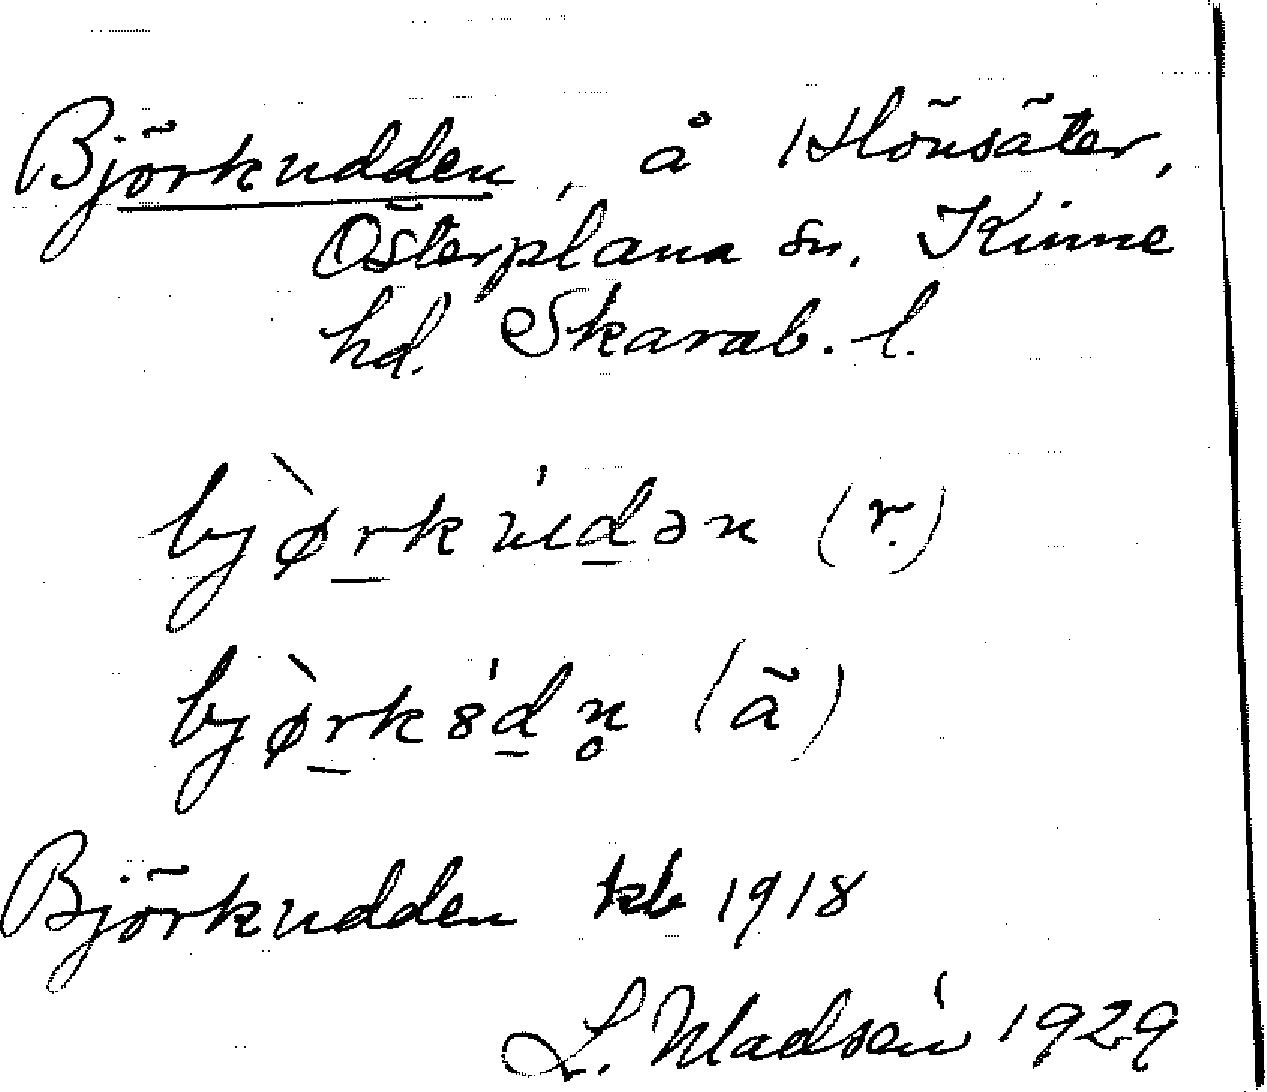 Björkudden, å Hönsäter,
Österplana sn. Kinne
hd. Skarab. l.
bjø̀rkùdən (r.)
bjø̀rk8́dn̥ (ä)
Björkudden kb 1918
L. Madsén 1929